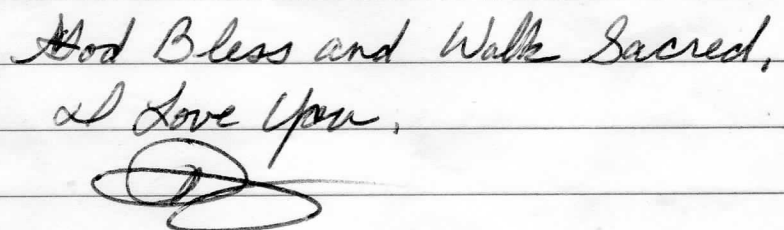 God Bless and Walk Sacred,
I Love You,